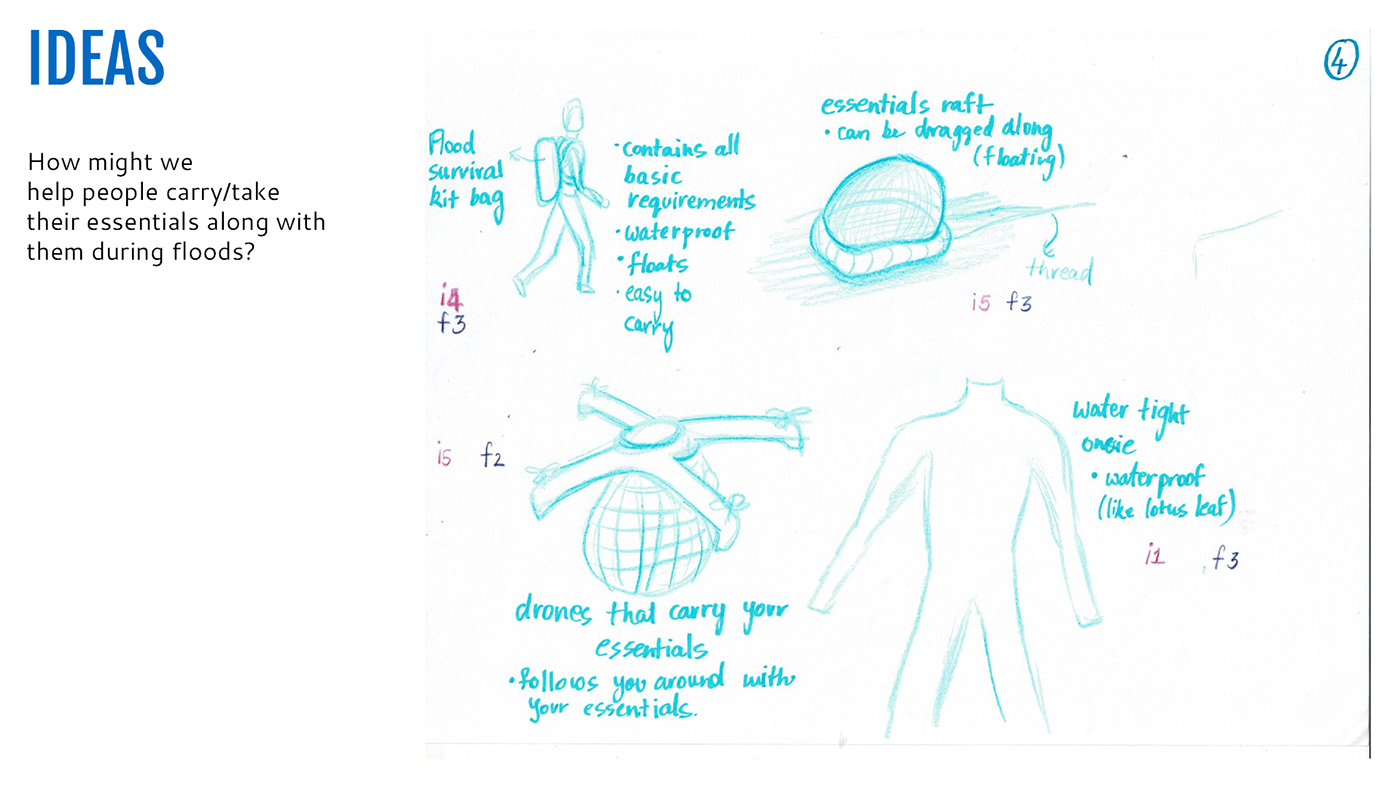 IDEAS
How might we
help people carry/take
their essentials along with
them during floods?
4
Flood
survival
kit bag
• contains all
basic
requirements
• waterproof
• floats
• easy to
carry
i4
f3
essentials raft
• can be dragged along
(floating)
thread
i5 f3
i5 f2
drones that carry your
essentials
• follows you around with
your essentials.
water tight
onsie
• waterproof
(like lotus leaf)
i1 f3